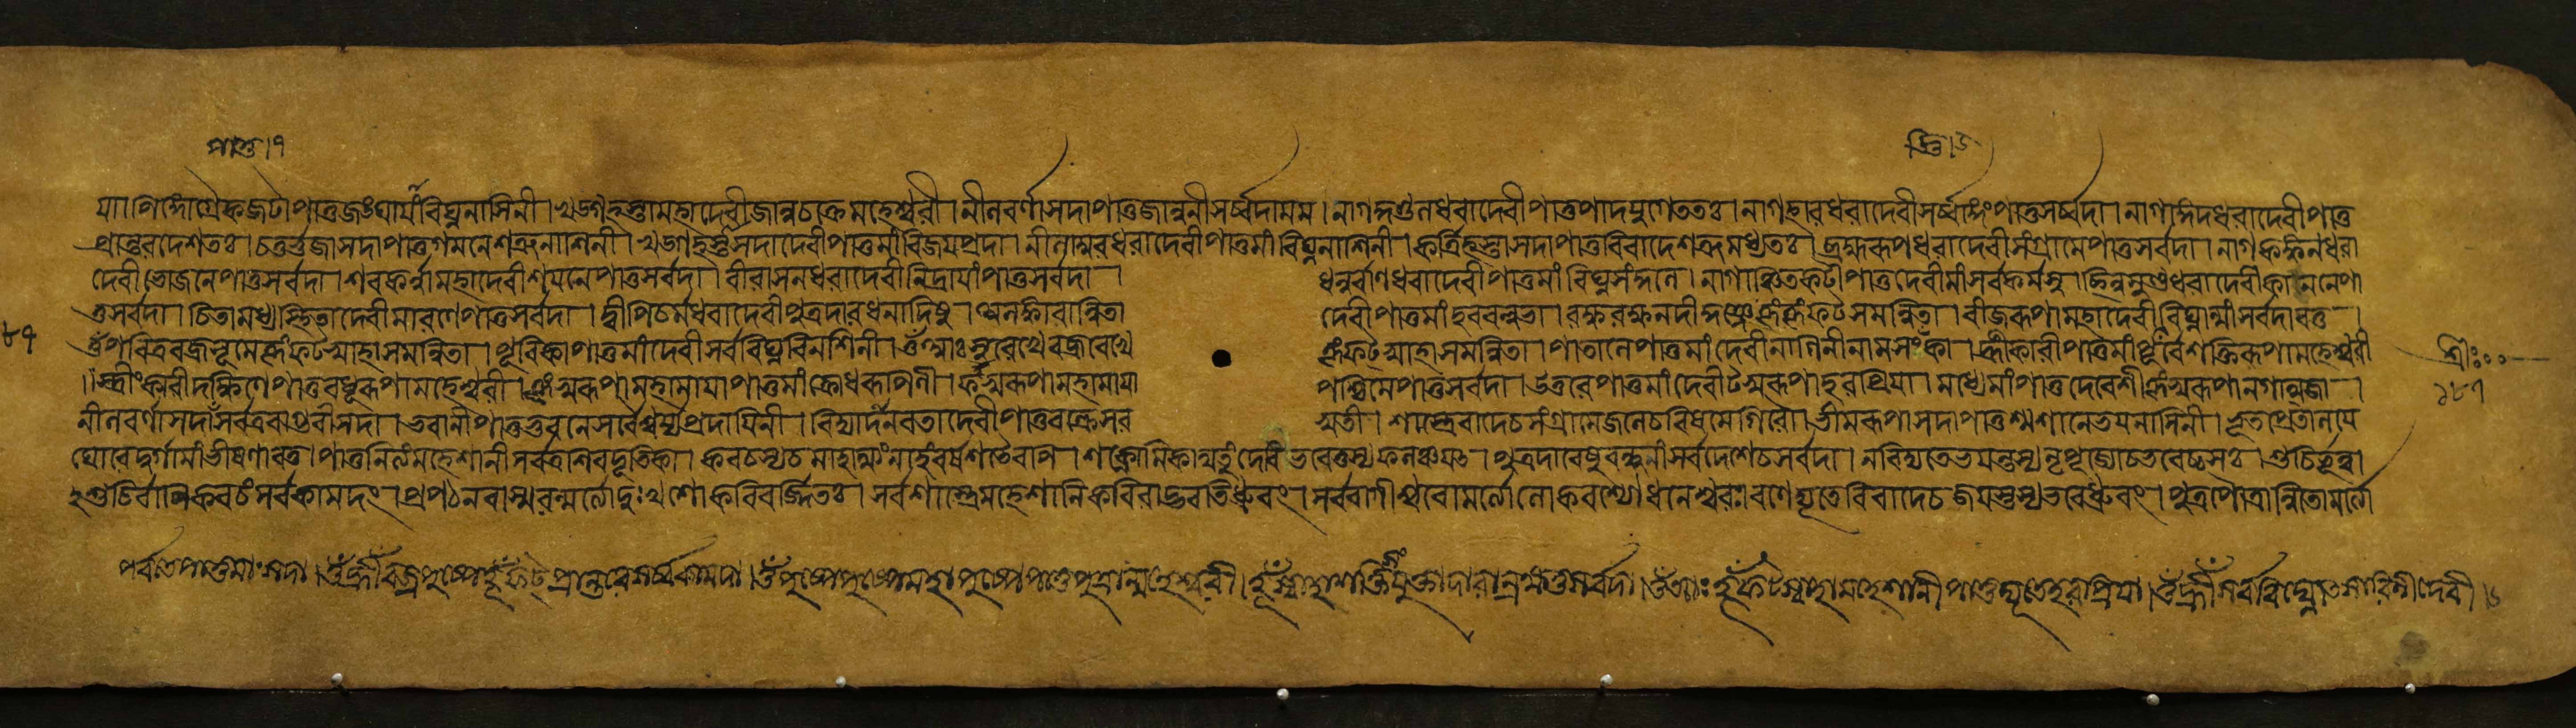 পাতু।১
স্ত্রি।৬
যা। পিঙ্গোগ্রৈকজটা পাতু জঙ্ঘাযাং বিঘ্ননাসিনী । খড্গহস্তা মহাদেবী জানুচক্র মহেশ্বরী । নীলবর্ণা সদা পাতু জানুনী সর্ব্বদা মম । নাগকুণ্ডলধরা দেবী পাতু পাদযুগে ততঃ । নাগহারধরা দেবী সর্ব্বাঙ্গং পাতু সর্ব্বদা । নাগাঙ্গদধরা দেবী পাতু
প্রান্তরদেশতঃ । চতুর্ভুজা সদা পাতু গমনে শত্রুনাশিনী । খড্গহস্তা সদা দেবী পাতু মাং বিজযপ্রদা । নীলাম্বরধরা দেবী পাতু মাং বিঘ্ননাশিনী । কর্ত্রিহস্তা সদা পাতু বিবাদে শত্রুমধ্যতঃ । ব্রহ্মরূপধরা দেবী সংগ্রামে পাতু সর্বদা । নাগকঙ্কনধরা
দেবী ভোজনে পাতু সর্বদা । শবকর্ণা মহাদেবী শযনে পাতু সর্বদা । বীরাসনধরা দেবী নিদ্রাযাং পাতু সর্বদা । ধনুর্বাণধরা দেবী পাতু মাং বিঘ্নসংকুলে । নাগাঞ্চিতকটী পাতু দেবী মাং সর্বকর্মসু । ছিন্নমুণ্ডধরা দেবী কাননে পা
তু সর্বদা । চিতামধ্যস্থিতা দেবী মারণে পাতু সর্বদা । দ্বীপিচর্মধরা দেবী পুত্রদারধনাদিষু । অলঙ্কারান্বিতা দেবী পাতু মাং হরবল্লভা । রক্ষ রক্ষ নদীকুঞ্জে হুং হুং ফট্ সমন্বিতা । বীজরূপা মহাদেবী বিঘ্নান্মাং সর্বদাবতু
৮১
ওঁ পবিত্রবজ্রভূমে হুং ফট্ স্বাহাসমন্বিতা । পূর্বিকা পাতু মাং দেবী সর্ববিঘ্নবিনাশিনী । ওঁ আঃ সুরেখে বজ্ররেখে হুং ফট্ স্বাহাসমন্বিতা । পাতালে পাতু মাং দেবী
হ্রীংকারী দক্ষিণে পাতু বধূরূপা মহেশ্বরী । হুংস্বরূপা মহামাযা পাতু মাং ক্রোধরূপিণী । ফট্স্বরূপা মহামাযা পশ্চিমে পাতু সর্বদা । উত্তরে পাতু মাং দেবী টস্বরূপা হরপ্রিযা । মধ্যে মাং পাতু দেবেশী হুংস্বরূপা নগাত্মজা ।
নীলবর্ণা সদা পাতু সর্বত্র বাগ্ভবী সদা । ভবানী পাতু ভুবনে সর্বৈশ্বর্যপ্রদাযিনী । বিদ্যাদানরতা দেবী পাতু বক্ত্রে সর স্বতী । শাস্ত্রে বাদে চ সংগ্রামে জলে চ বিষমে গিরৌ । ভীমরূপা সদা পাতু শ্মশানে ভযনাসিনী । ভূতপ্রেতালযে
ঘোরে দুর্গা মাং ভীষণাবতু । পাতু নিত্যং মহেশানী সর্বত্র শিবদূতিকা । কবচস্য চ মাহাত্ম্যং নাহং বর্ষশতৈরপি । শক্নোমি কথিতুং দেবি ভবেত্তস্য ফলঞ্চ যৎ । পুত্রদারেষু বন্ধূনাং সর্বদেশে চ সর্বদা । ন বিদ্যতে ভযং তস্য নৃপপূজ্যো ভবেচ্চ সঃ । শুচির্ভূত্বা
ঽশুচির্বাপি কবচং সর্বকামদং । প্রপঠন্ বা স্মরন্ মর্ত্যো দুঃখশোকবিবর্জিতঃ । সর্বশাস্ত্রে মহেশানি কবিরাড্ ভবতি ধ্রুবং । সর্ববাগীশ্বরো মর্ত্যো লোকবশ্যো ধনেশ্বরঃ । রণে দ্যূতে বিবাদে চ জযস্তস্য ভবেদ্ধ্রুবং । পুত্রপৌত্রান্বিতো মর্ত্যো
শ্রীঃ
১৮১
পর্বতে পাতু মাং সদা । ওঁ হ্রীঁ বজ্রপুষ্পে হূঁ ফট্ প্রান্তরে সর্ব্বকামদা । ওঁ পুষ্পে পুষ্পে মহাপুষ্পে পাতু পুত্রান্মহেশ্বরী । হূঁ স্বাহা শক্তিসংযুক্তা দারান্ রক্ষতু সর্বদা । ওঁ আঃ হূঁ ফট্ স্বাহা মহেশানী পাতু দ্যূতে হরপ্রিযা । ওঁ হ্রীঁ সর্ববিঘ্নোৎসারিণী দেবী ।৬